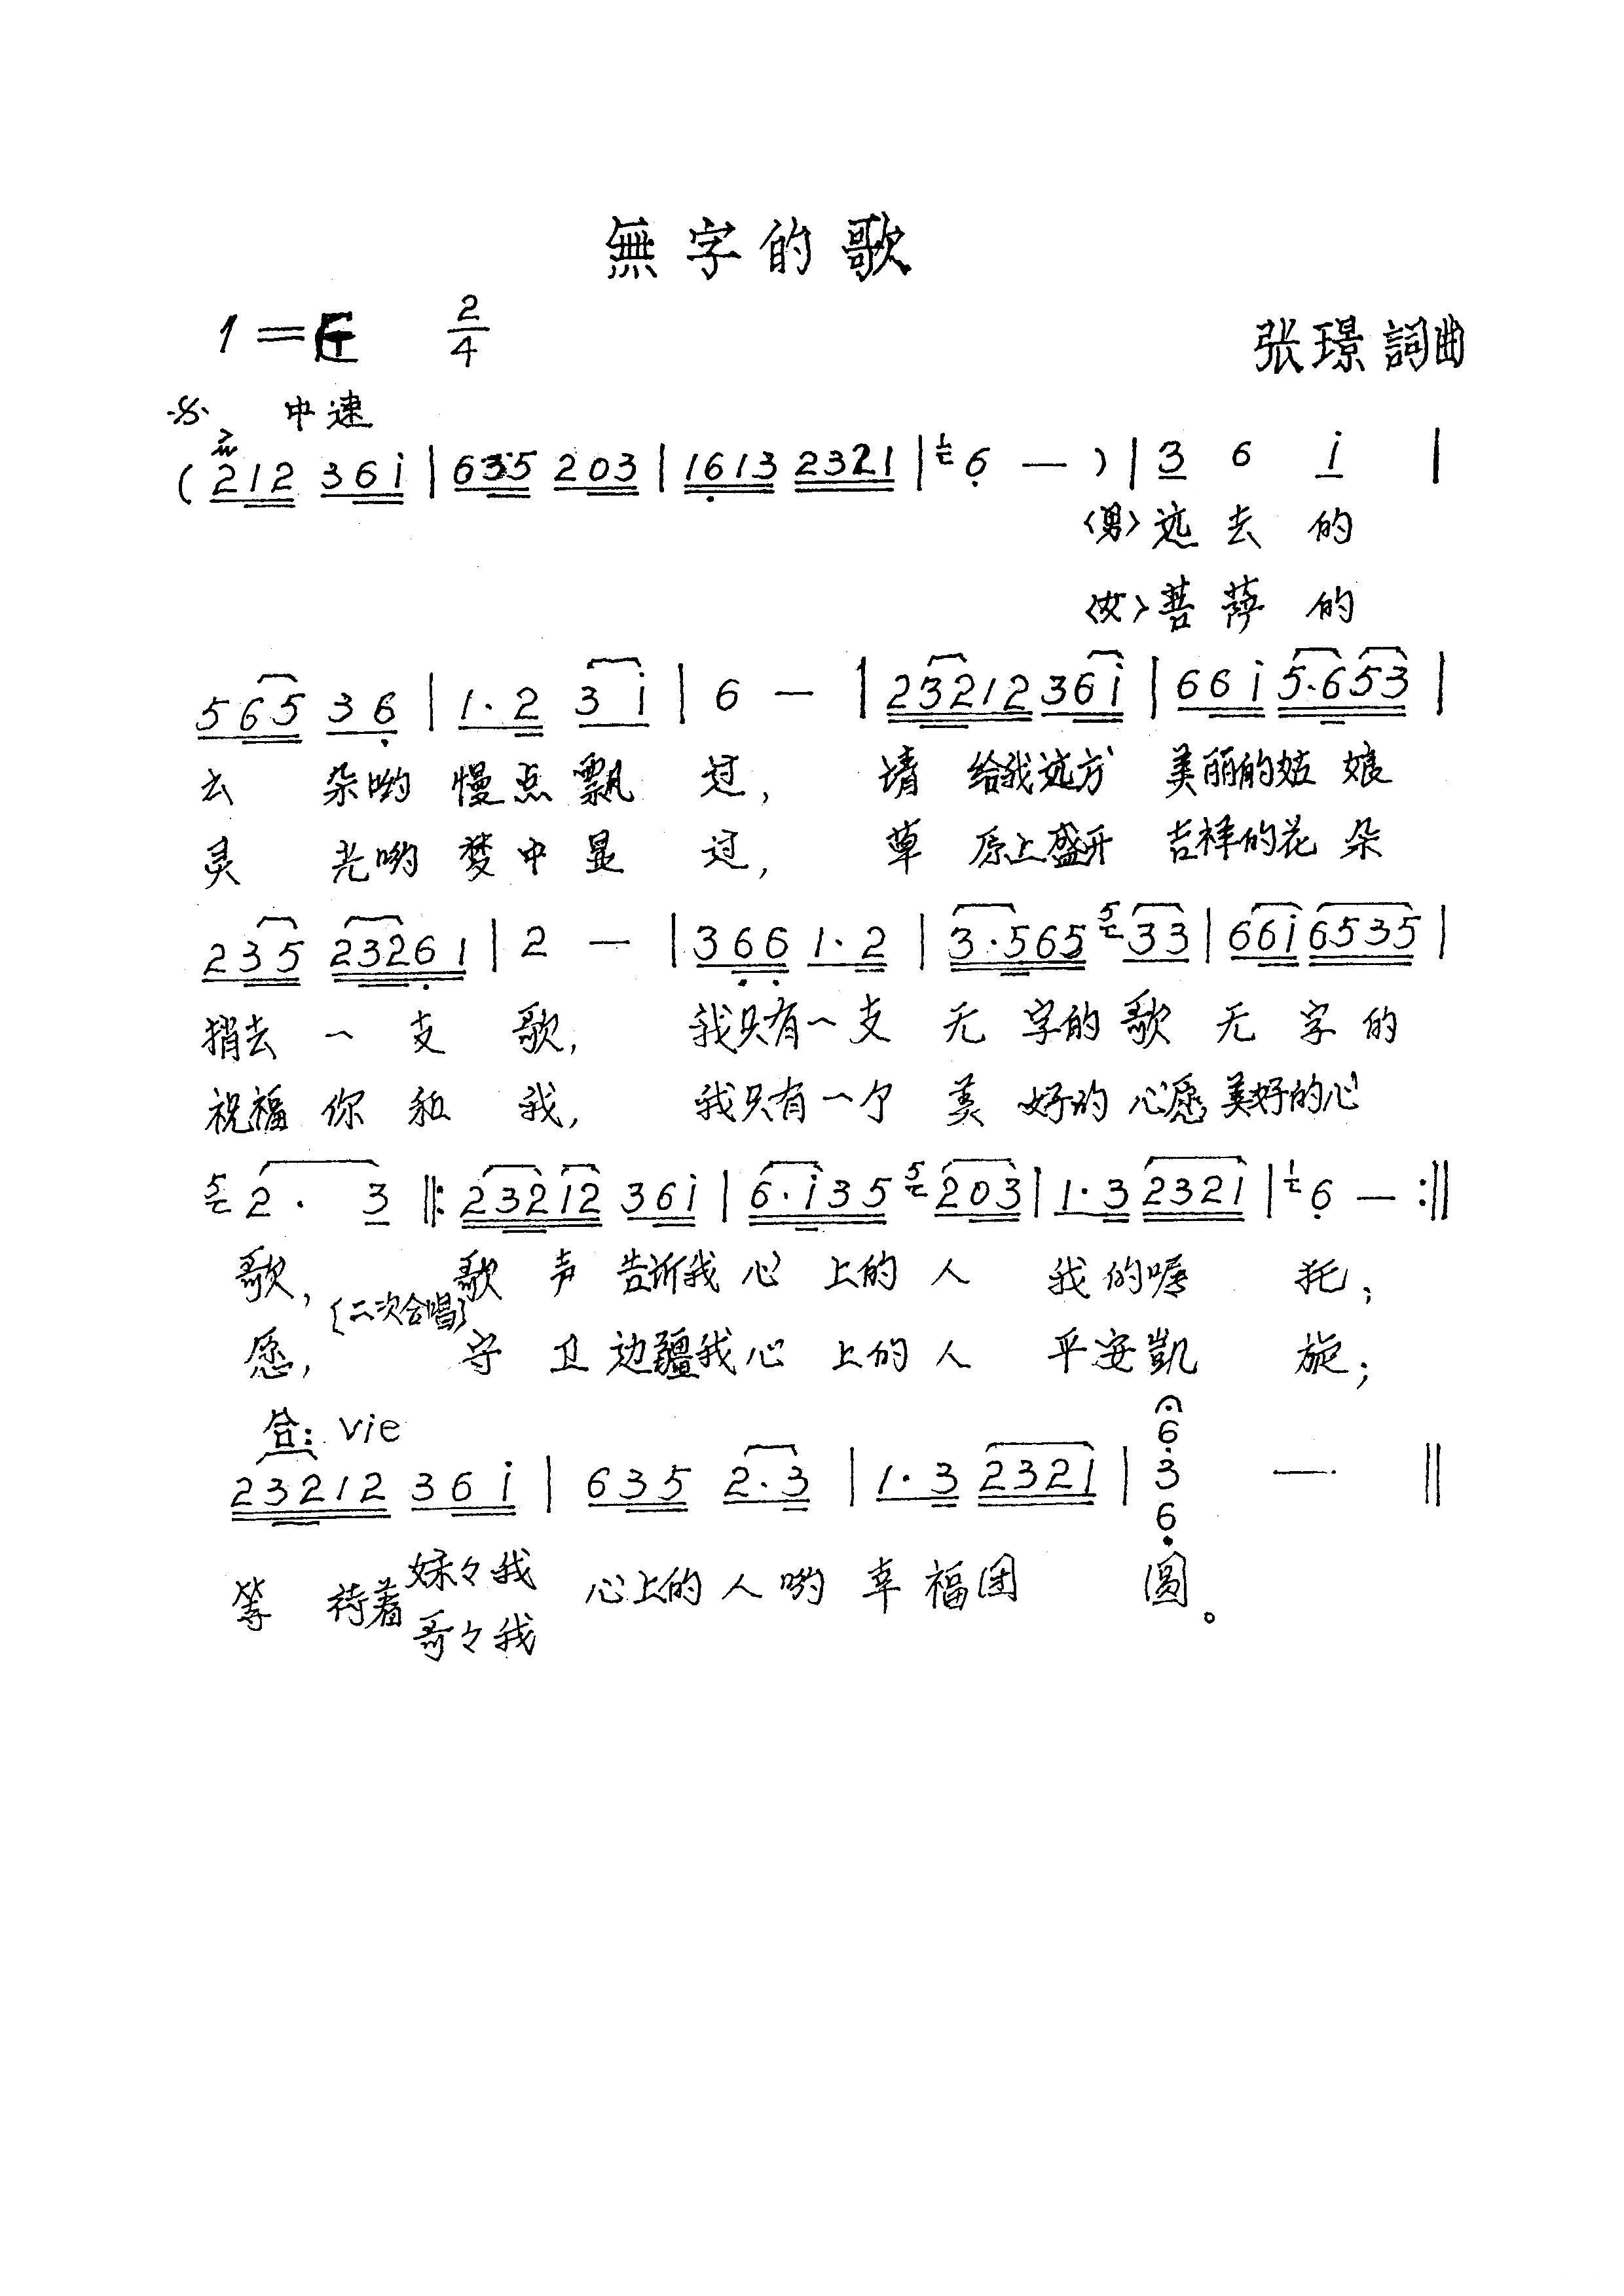 無字的歌
1= 2/4
张璟詞曲
中速
(212 36i | 635 203 | 1613 2321 | 6 — ) | 3 6 i |
〈男〉远去的
〈女〉菩萨的
565 36 | 1·2 3i | 6 — | 23212 36i | 66i 5·653 |
云 朵哟 慢点飘 过, 请 给我远方 美丽的姑娘
灵 光哟 梦中显 过, 草 原上盛开 吉祥的花朵
235 23261 | 2 — | 366 1·2 | 3·565 5 33 | 66i 6535 |
捎去 一 支 歌, 我只有一支 无 字的歌 无 字 的
祝福 你 和 我, 我只有一个 美 好的 心愿 美好的心
5 2· 3 ‖: 23212 36i | 6·i35 5 203 | 1·3 2321 | 1 6 — :‖
歌, 歌 声 告诉我 心 上的 人 我的嘱 托;
(二次合唱)
愿, 守 卫 边疆我 心 上的 人 平安凱 旋;
合: vie
23212 36i | 635 2·3 | 1·3 2321 | 6 3 6 — ‖
等 待着 妹々我 心上的 人哟 幸 福团 圆。
哥々我